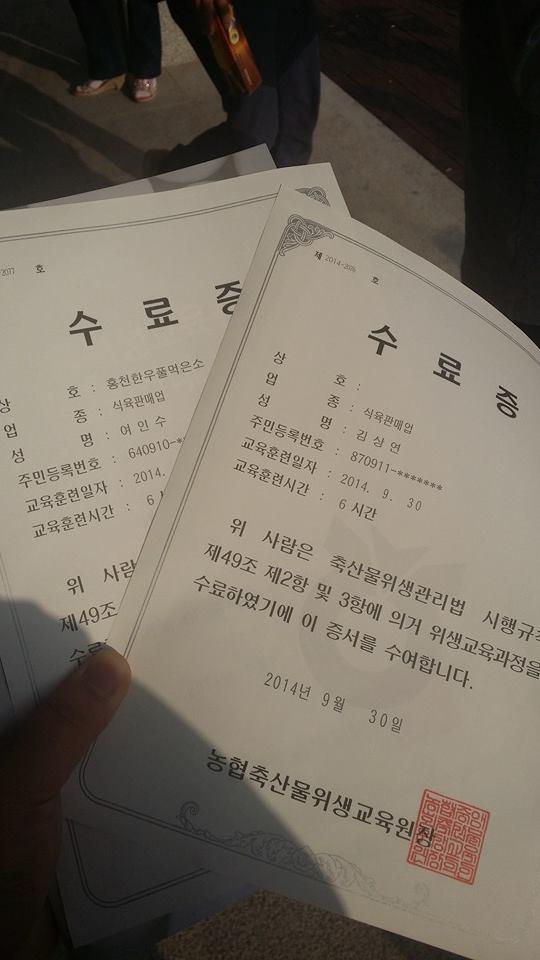 -2077 호
수 료 증
상 호 : 홍천한우풀먹은소
업 종 : 식육판매업
성 명 : 여 인 수
주민등록번호 : 640910-*
교육훈련일자 : 2014.
교육훈련시간 : 6
위 사람
제49조
제 2014-2076 호
수 료 증
상 호 :
업 종 : 식육판매업
성 명 : 김 상 연
주민등록번호 : 870911-*******
교육훈련일자 : 2014. 9. 30
교육훈련시간 : 6 시간
위 사람은 축산물위생관리법 시행규칙
제49조 제2항 및 3항에 의거 위생교육과정을
수료하였기에 이 증서를 수여합니다.
2014년 9월 30일
농협축산물위생교육원장